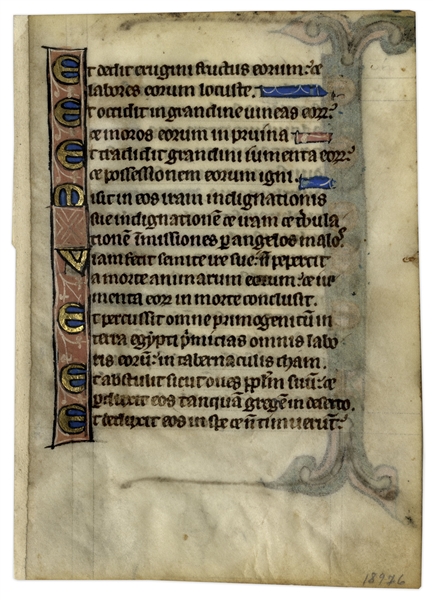 Et dedit erugini fructus eorum: &
labores eorum locuste.
Et occidit in grandine vineas eorꝝ:
& moros eorum in pruina
Et tradidit grandini iumenta eorꝝ:
& possessionem eorum igni.
Misit in eos iram indignationis
sue indignationē & iram & tⁱbula
tionē īmissiones ꝑ angelos malos
Viam fecit semite ire sue: ñ pepercit
a morte animarum eorum: & iu
menta eorꝝ in morte conclusit.
Et percussit omne primogenitū in
terra egypti pⁱmicias omnis labo
ris eorū: in tabernaculis cham.
Et abstulit sicut oues pplm suū: &
ꝑduxit eos tanquā gregē in deserto.
Et deduxit eos in spe & ñ timuerūt:
18976